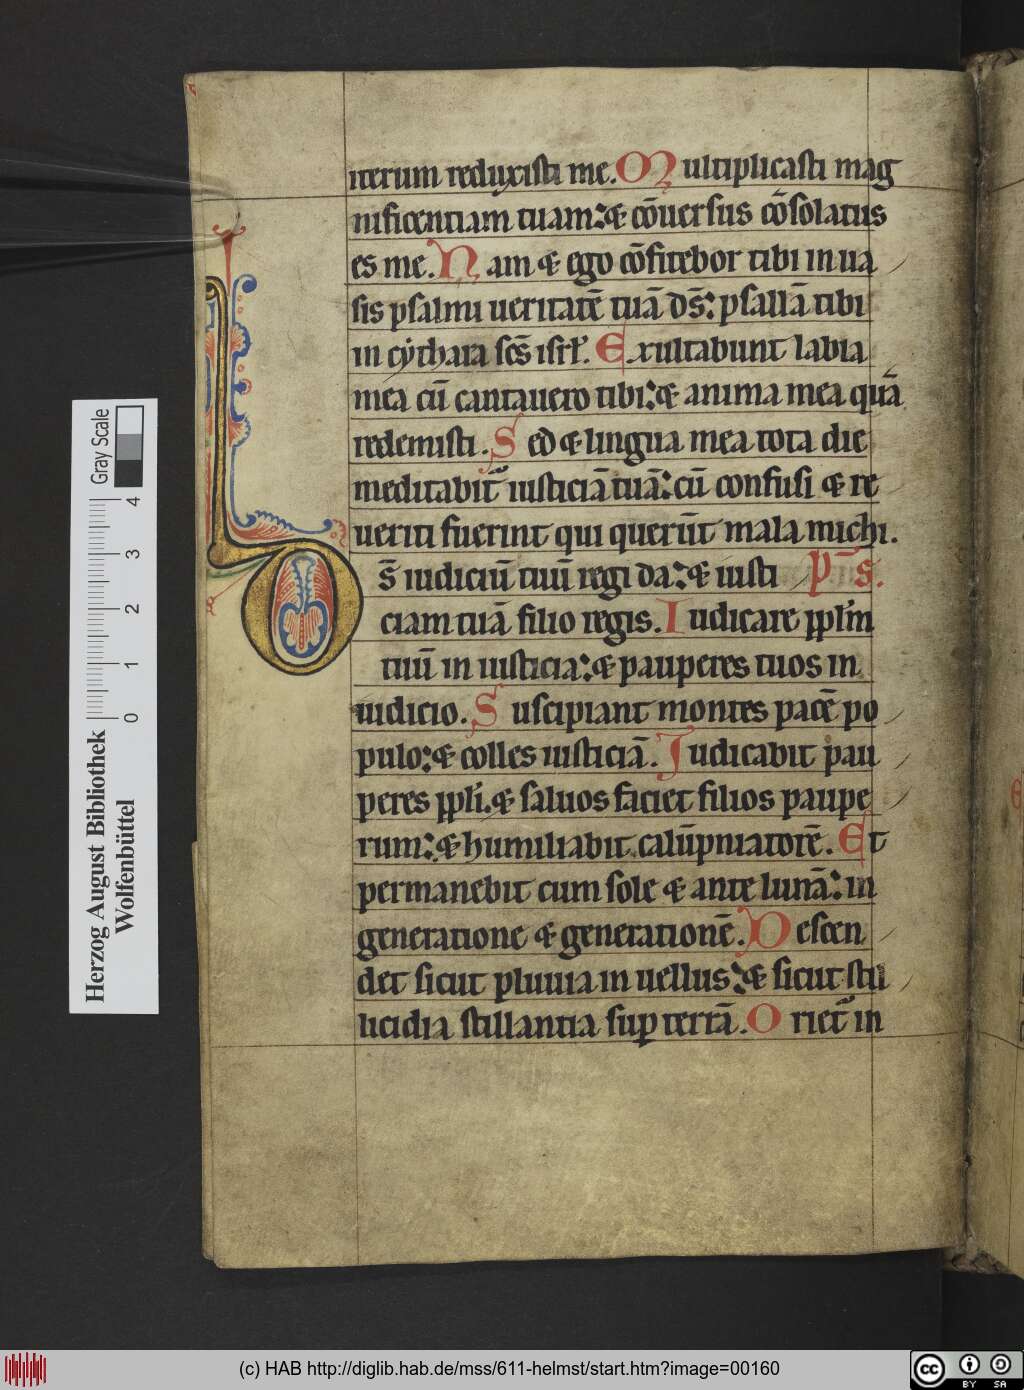 iterum reduxisti me. Multiplicasti mag
nificentiam tuam: & cōuersus cōsolatus
es me. Nam & ego cōfitebor tibi in ua
sis psalmi ueritatē tuā ds̄: psallā tibi
in cythara scs̄ isrl̄. Exultabunt labia
mea cū cantauero tibi: & anima mea quā
redemisti. Sed & lingua mea tota die
meditabit᷑ iusticiā tuā: cū confusi & re
ueriti fuerint qui querūt mala michi.
Ds̄ iudiciū tuū regi da: & iusti p̄s.
ciam tuā filio regis. Iudicare ppl̄m
tuū in iusticia: & pauperes tuos in
iudicio. Suscipiant montes pacē po
pulo: & colles iusticiā. Iudicabit pau
peres ppl̄i. & saluos faciet filios paupe
rum: & humiliabit calūpniatorē. Et
permanebit cum sole & ante lunā: in
generatione & generationē. Descen
det sicut pluuia in uellus: & sicut stil
licidia stillantia suꝑ terrā. Oriet᷑ in
Herzog August Bibliothek
Wolfenbüttel
0 1 2 3 4
Gray Scale
(c) HAB http://diglib.hab.de/mss/611-helmst/start.htm?image=00160
cc BY SA